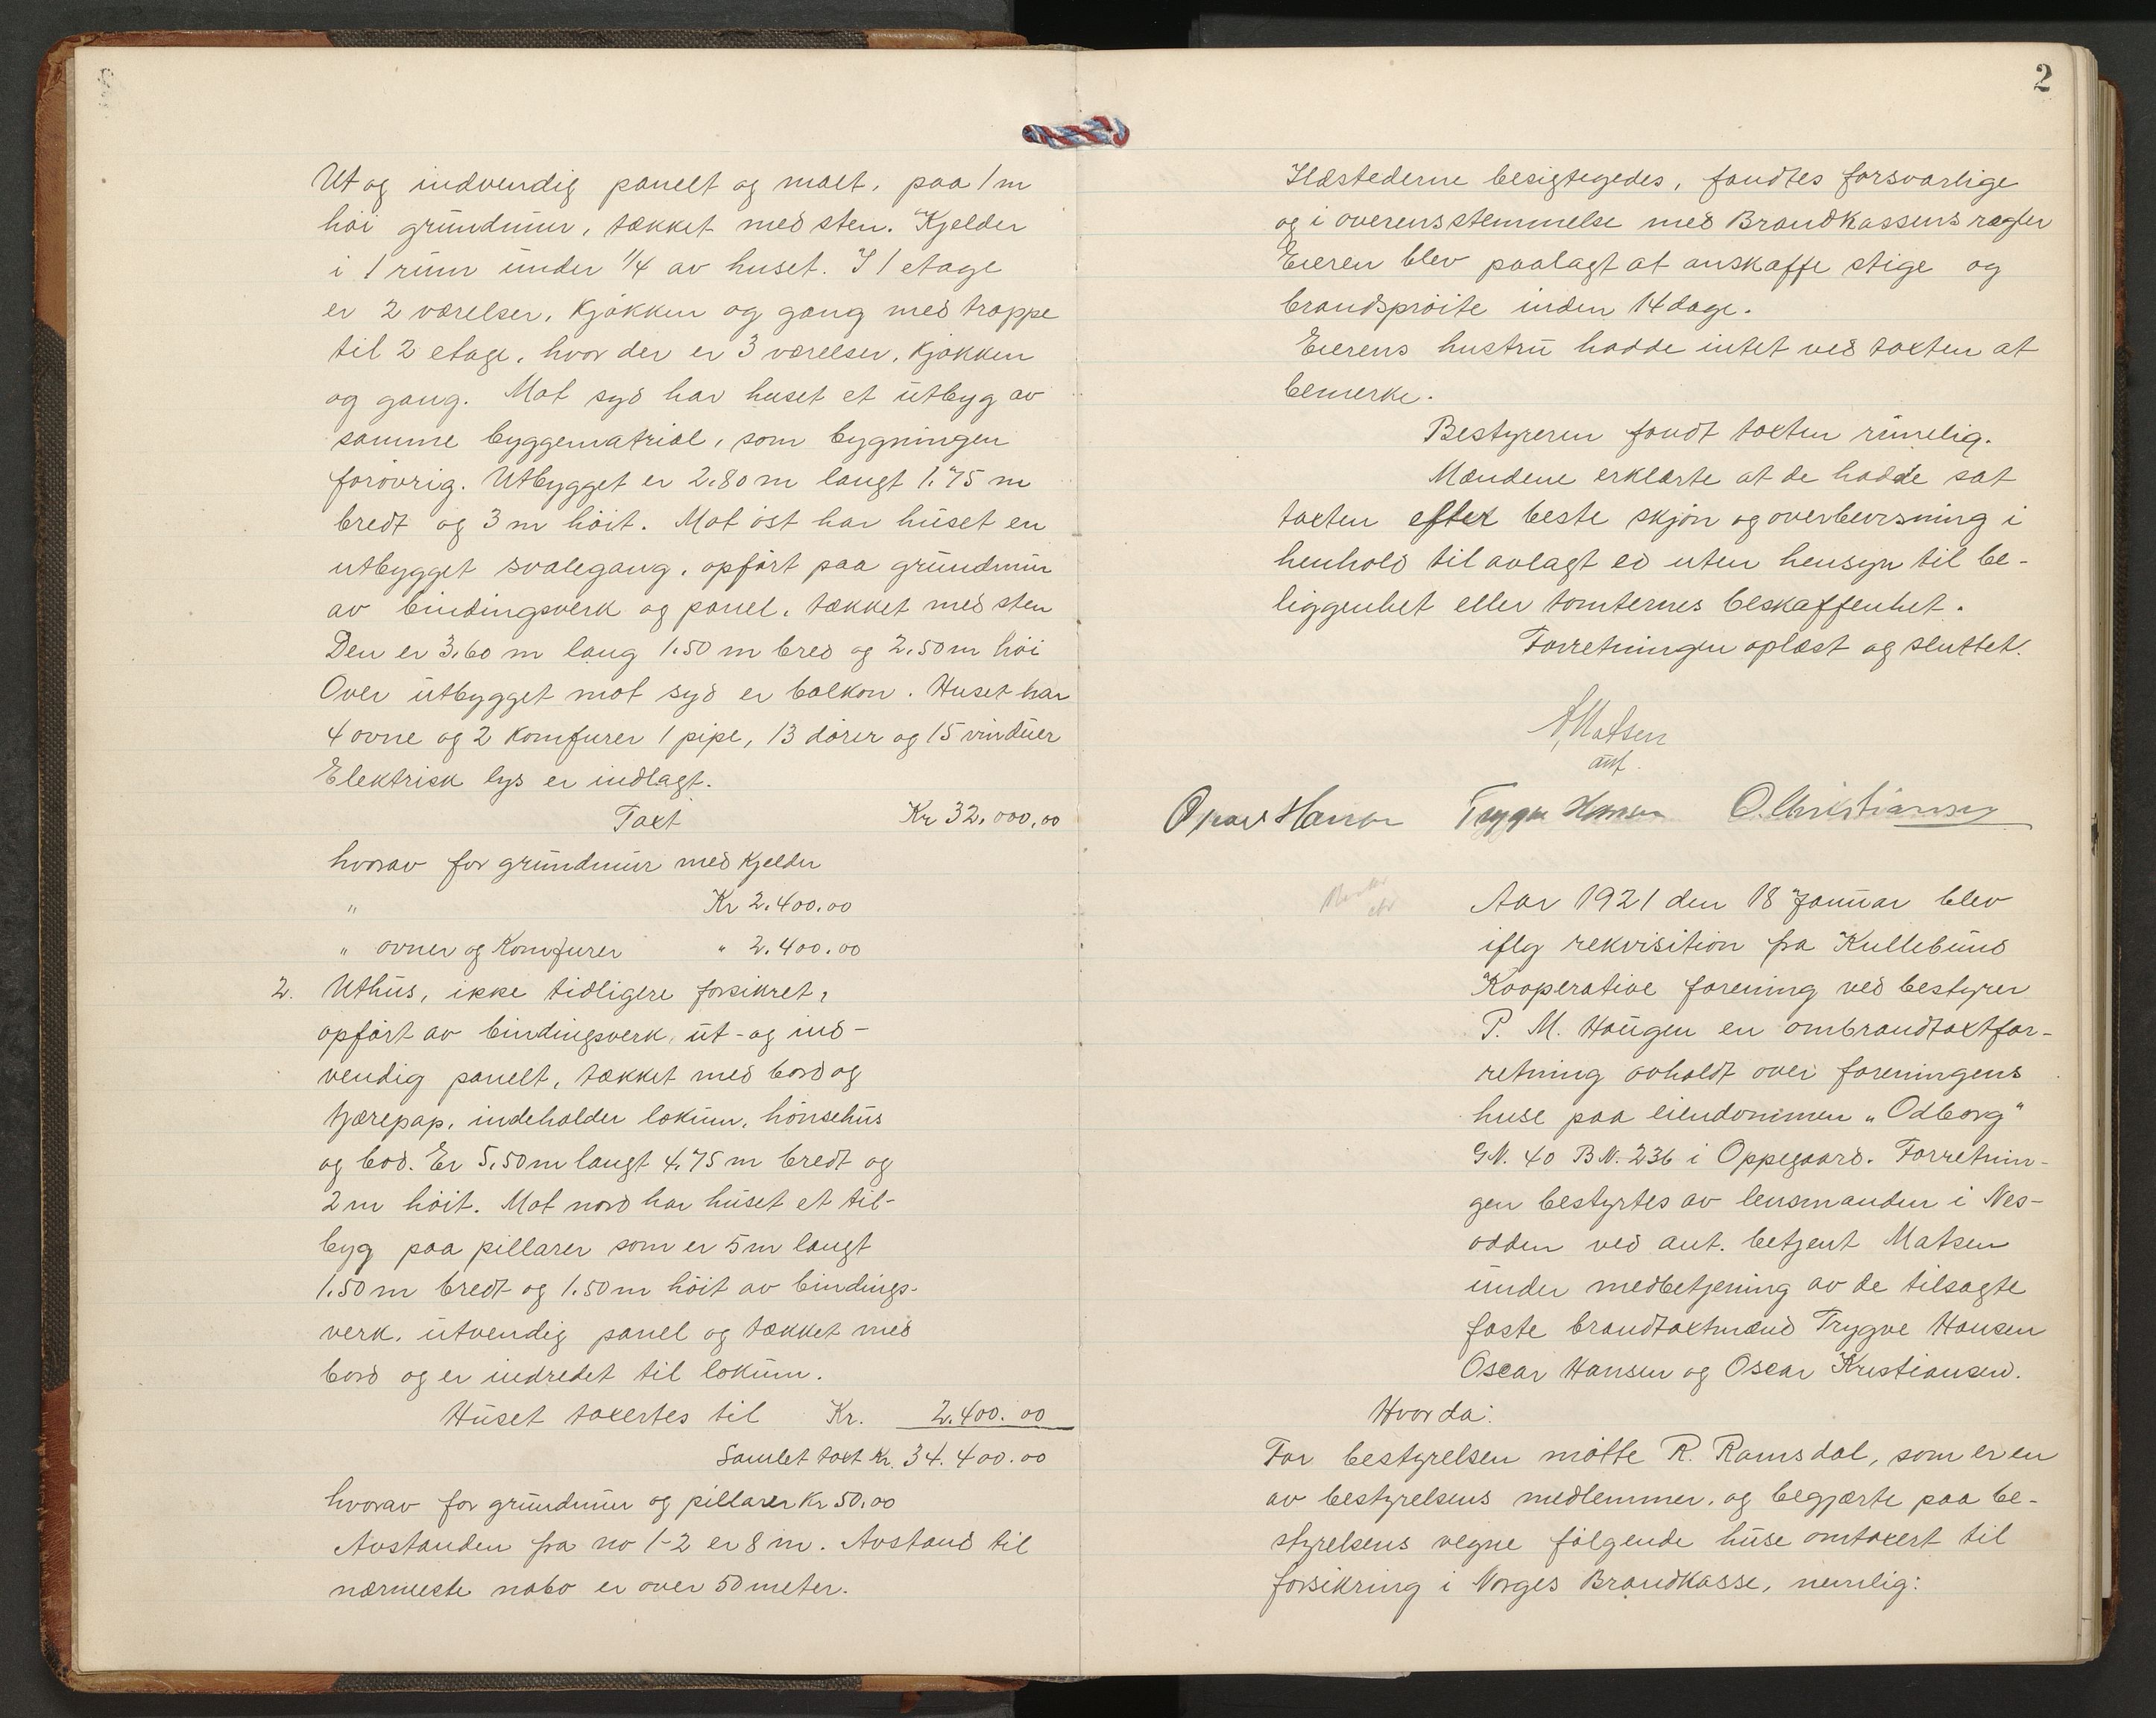 Ut og indvendig panelt og malt, paa 1 m
höi grundmur, tækket med sten. Kjelder
i 1 rum under 1/4 av huset. I 1 etage
er 2 værelser, Kjøkken og gang med trappe
til 2 etage, hvor der er 3 værelser, Kjøkken
og gang. Mot syd har huset et utbyg av
samme byggematrial, som bygningen
forövrig. Utbygget er 2.80 m langt 1.75 m
bredt og 3 m höit. Mot öst har huset en
utbygget svalegang, opfört paa grundmur
av bindingsverk og panel, tækket med sten
Den er 3.60 m lang 1.50 m bred og 2.50 m höi
Over utbygget mot syd er balkon. Huset har
4 ovne og 2 Komfurer 1 pipe, 13 dörer og 15 vinduer
Elektrisk lys er indlagt.
Taxt Kr 32.000,00
hvorav for grundmur med Kjelder
" Kr 2.400.00
" ovner og Komfurer " 2.400.00
2. Uthus, ikke tidligere forsikret,
opfört av bindingsverk, ut- og ind-
vendig panelt, tækket med bord og
tjærepap, indeholder lokum, hönsehus
og bod. Er 5.50 m langt 4.75 m bredt og
2 m höit. Mot nord har huset et til-
byg paa pillarer som er 5 m langt
1.50 m bredt og 1.50 m höit av bindings-
verk, utvendig panel og tækket med
bord og er indredet til lokum.
Huset taxertes til Kr. 2.400.00
Samlet taxt Kr. 34.400.00
hvorav for grundmur og pillarer Kr 50,00
Avstanden fra no 1-2 er 8 m. Avstand til
nærmeste nabo er over 50 meter.
2
Ildstederne besigtegedes, fandtes forsvarlige
og i overensstemmelse med Brandkassens regler
Eieren blev paalagt at anskaffe stige og
brandspröite inden 14 dage.
Eierens hustru hadde intet ved taxten at
bemerke.
Bestyreren fandt taxten rimelig.
Mændene erklærte at de hadde sat
taxten efter beste skjön og overbevisning i
henhold til avlagt ed uten hensyn til be-
liggenhet eller tomternes beskaffenhet.
Forretningen oplæst og sluttet.
A. Matsen
aut.
Oscar Hansen Trygve Hansen O. Christiansen
Aar 1921 den 18 Januar blev
iflg rekvisition fra Kullebund
Kooperative forening ved bestyrer
P. M. Haugen en ombrandtaxtfor-
retning avholdt over foreningens
huse paa eiendommen „Odborg"
G.N. 40 B.N. 236 i Oppegaard. Forretnin-
gen bestyrtes av lensmanden i Nes-
odden ved aut. betjent Matsen
under medbetjening av de tilsagte
faste brandtaxtmænd Trygve Hansen
Oscar Hansen og Oscar Kristiansen.
Hvor da:
For bestyrelsen mötte R. Ramsdal, som er en
av bestyrelsens medlemmer, og begjærte paa be-
styrelsens vegne fölgende huse omtaxert til
forsikring i Norges Brandkasse, nemlig: